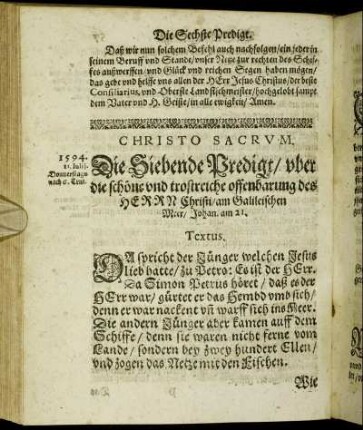 Die Sechste Predigt.
Daß wir nun solchem Befehl auch nachfolgen/ ein jeder in
seinem Beruff vnd Stande/ vnser Netze zur rechten des Schif-
fes außwerffen/ vnd Glück vnd reichen Segen haben mögen/
das gebe vnd helffe vns allen der HErr Jesus Christus/ der beste
Consiliarius, vnd Oberste Landfischmeister/ hochgelobt sampt
dem Vater vnd H. Geiste/ in alle ewigkeit/ Amen.
CHRISTO SACRVM.
1594.
21. Julij.
Donnerstags
nach
Die Siebende Predigt/ vber
die schöne vnd trostreiche offenbarung des
HERRN Christi/ am Galileischen
Meer/ Johan. am 21.
Textus.
DA spricht der Jünger welchen Jesus
lieb hatte/ zu Petro: Es ist der HErr.
Da Simon Petrus höret/ daß es der
HErr war/ gürtet er das Hembd vmb sich/
denn er war nackent vñ warff sich ins Meer.
Die andern Jünger aber kamen auff dem
Schiffe/ denn sie waren nicht ferne vom
Lande/ sondern bey zwey hundert Ellen/
vnd zogen das Netze mit den Fischen.
Wie